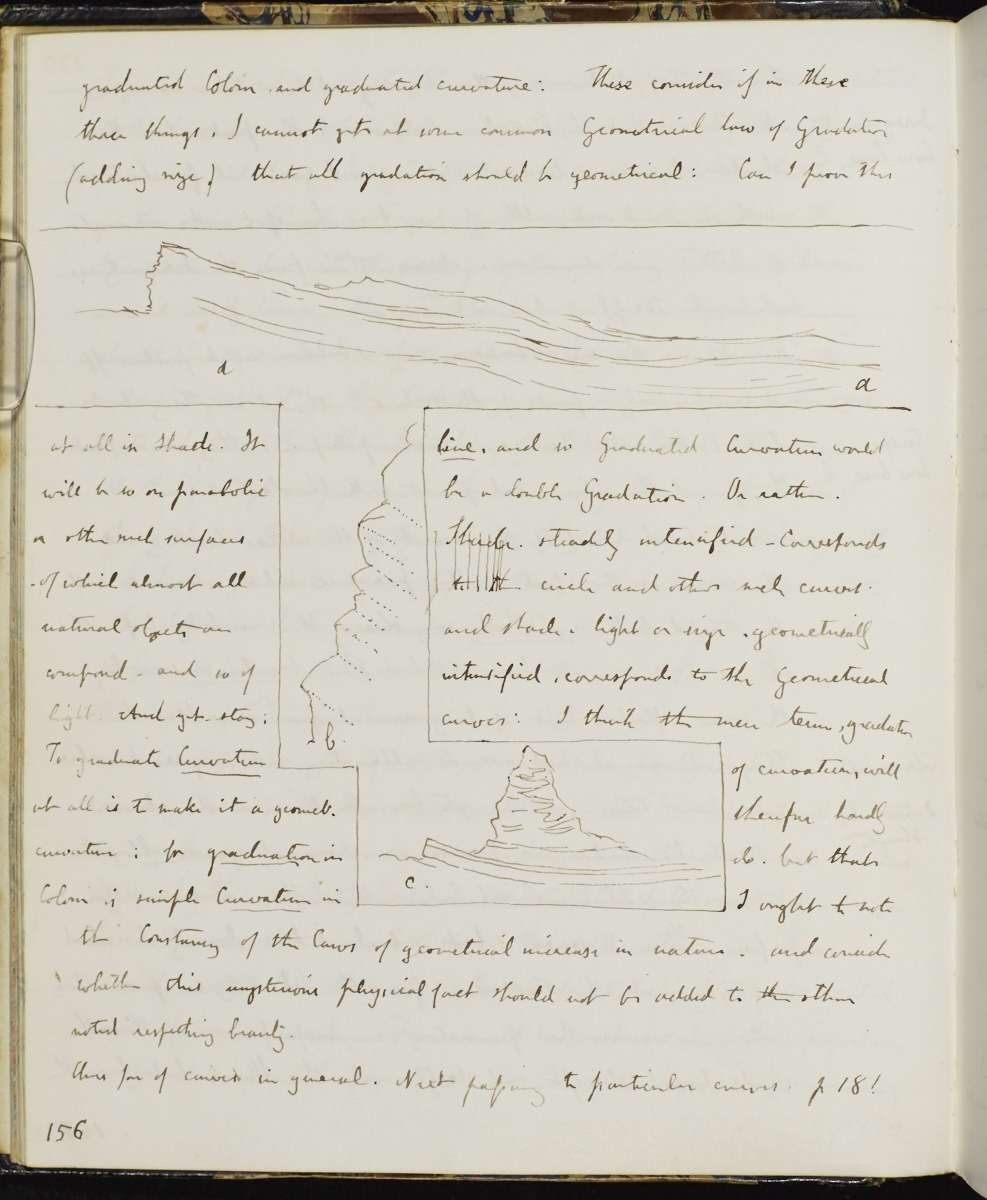 graduated Colour and graduated curvature: These consider if in these
three things, I cannot get at some common Geometrical law of Gradation
(adding size) that all gradation should be geometrical: Can I prove this
a
a
at all in shade. It
will be so on parabolic
or other such surfaces
- of which almost all
natural objects are
compound - and so of
light. And yet - stay:
To graduate Curvature
at all is to make it a geomet.
curvature: for graduation in
Colour is simple Curvature in
b.
line, and so Graduated Curvature would
be a double Gradation. Or rather.
Shade. steadily intensified - Corresponds
to the circle and other such curves.
and shade. light or size. geometrically
intensified, corresponds to the Geometrical
curves: I think the mere term, gradation
of curvature, will
therefore hardly
do. but that
c.
I ought to note
the Constancy of the Laws of geometrical increase in nature. and consider
whether this mysterious physical fact should not be added to the others
noted respecting beauty.
Thus far of curves in general. Next passing to particular curves. p 18!
156